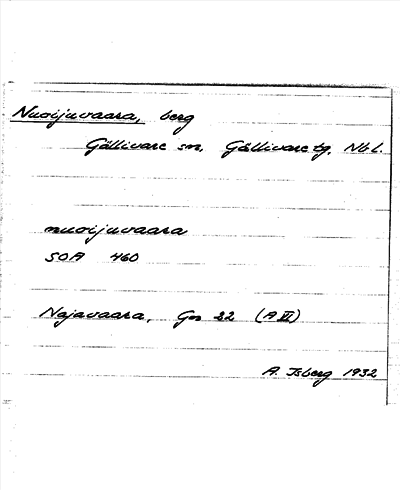 Nuoijuvaara, berg
Gällivare sn, Gällivare tg, Nbl.
nuoijuvaara
SOA 460
Najavaara, Gs 22 (A VI)
A. Isberg 1932